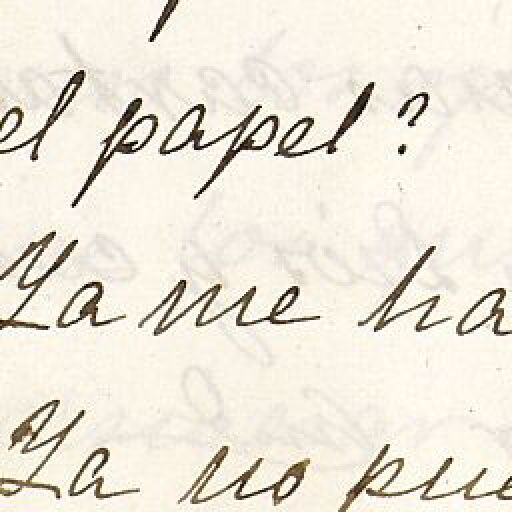 el papel?
Ya me ha
Ya no pue